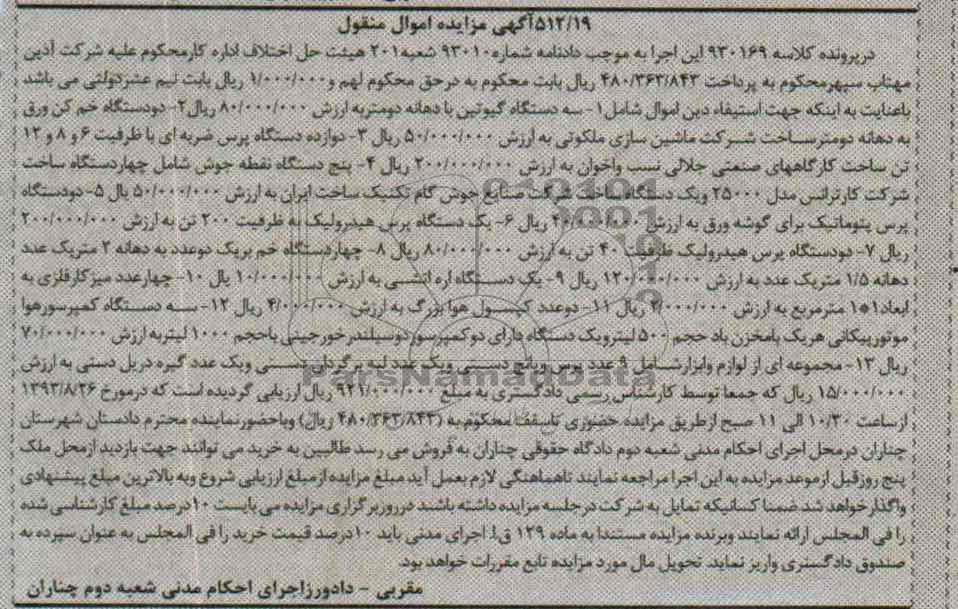 ۵۱۲/۱۹آگهی مزایده اموال منقول
درپرونده کلاسه ۹۳۰۱۶۹ این اجرا به موجب دادنامه شماره۹۳۰۱۰ شعبه۲۰۱ هیئت حل اختلاف اداره کارمحکوم علیه شرکت آذین
مهتاب سپهرمحکوم به پرداخت ۴۸۰/۳۶۳/۸۴۳ ریال بابت محکوم به درحق محکوم لهم و۱/۰۰۰/۰۰۰ ریال بابت نیم عشردولتی می باشد
باعنایت به اینکه جهت استیفاء دین اموال شامل۱- سه دستگاه گیوتین با دهانه دومتربه ارزش ۸۰/۰۰۰/۰۰۰ ریال۲- دودستگاه خم کن ورق
به دهانه دومترساخت شرکت ماشین سازی ملکوتی به ارزش ۵۰/۰۰۰/۰۰۰ ریال ۳- دوازده دستگاه پرس ضربه ای با ظرفیت ۶ و ۸ و ۱۲
تن ساخت کارگاههای صنعتی جلالی نسب واخوان به ارزش ۲۰۰/۰۰۰/۰۰۰ ریال ۴- پنج دستگاه نقطه جوش شامل چهاردستگاه ساخت
شرکت کارترانس مدل ۲۵۰۰۰ ویک دستگاه ساخت شرکت صنایع جوش گام تکنیک ساخت ایران به ارزش ۵۰/۰۰۰/۰۰۰ یال ۵- دودستگاه
پرس پنوماتیک برای گوشه ورق به ارزش ریال ۶- یک دستگاه پرس هیدرولیک به ظرفیت ۲۰۰ تن به ارزش ۲۰۰/۰۰۰/۰۰۰
ریال ۷- دودستگاه پرس هیدرولیک ظرفیت ۴۰ تن به ارزش ۸۰/۰۰۰/۰۰۰ ریال ۸- چهاردستگاه خم بریک دوعدد به دهانه ۲ متریک عدد
دهانه ۱/۵ متریک عدد به ارزش ۱۲۰/۰۰۰/۰۰۰ ریال ۹- یک دستگاه اره آتشی به ارزش ۱۰/۰۰۰/۰۰۰ یال ۱۰- چهارعدد میزکارفلزی به
ابعاد۱*۱ مترمربع به ارزش ۲/۰۰۰/۰۰۰ ریال ۱۱- دوعدد کپسول هوا بزرگ به ارزش ۴/۰۰۰/۰۰۰ ریال ۱۲- سه دستگاه کمپرسورهوا
موتورپیکانی هریک بامخزن باد حجم ۵۰۰ لیترویک دستگاه دارای دوکمپرسوردوسیلندرخورجینی باحجم ۱۰۰۰ لیتربه ارزش ۷۰/۰۰۰/۰۰۰
ریال ۱۳- مجموعه ای از لوازم وابزارشامل ۹ عدد پرس وپانچ دستی ویک عدد لبه برگردان دستی ویک عدد گیره دریل دستی به ارزش
۱۵/۰۰۰/۰۰۰ ریال که جمعا توسط کارشناس رسمی دادگستری به مبلغ ۹۲۱/۰۰۰/۰۰۰ ریال ارزیابی گردیده است که درمورخ ۱۳۹۳/۸/۲۶
ازساعت ۱۰/۳۰ الی ۱۱ صبح ازطریق مزایده حضوری تاسقف محکوم به (۴۸۰/۳۶۳/۸۴۳ ریال) وباحضورنماینده محترم دادستان شهرستان
چناران درمحل اجرای احکام مدنی شعبه دوم دادگاه حقوقی چناران به فروش می رسد طالبین به خرید می توانند جهت بازدید ازمحل ملک
پنج روزقبل ازموعد مزایده به این اجرا مراجعه نمایند تاهماهنگی لازم بعمل آید مبلغ مزایده ازمبلغ ارزیابی شروع وبه بالاترین مبلغ پیشنهادی
واگذارخواهد شد ضمنا کسانیکه تمایل به شرکت درجلسه مزایده داشته باشند درروزبرگزاری مزایده می بایست ۱۰درصد مبلغ کارشناسی شده
را فی المجلس ارائه نمایند وبرنده مزایده مستندا به ماده ۱۲۹ ق.ا. اجرای مدنی باید ۱۰درصد قیمت خرید را فی المجلس به عنوان سپرده به
صندوق دادگستری واریز نماید. تحویل مال مورد مزایده تابع مقررات خواهد بود.
مقربی - دادورزاجرای احکام مدنی شعبه دوم چناران
ParsNamadData